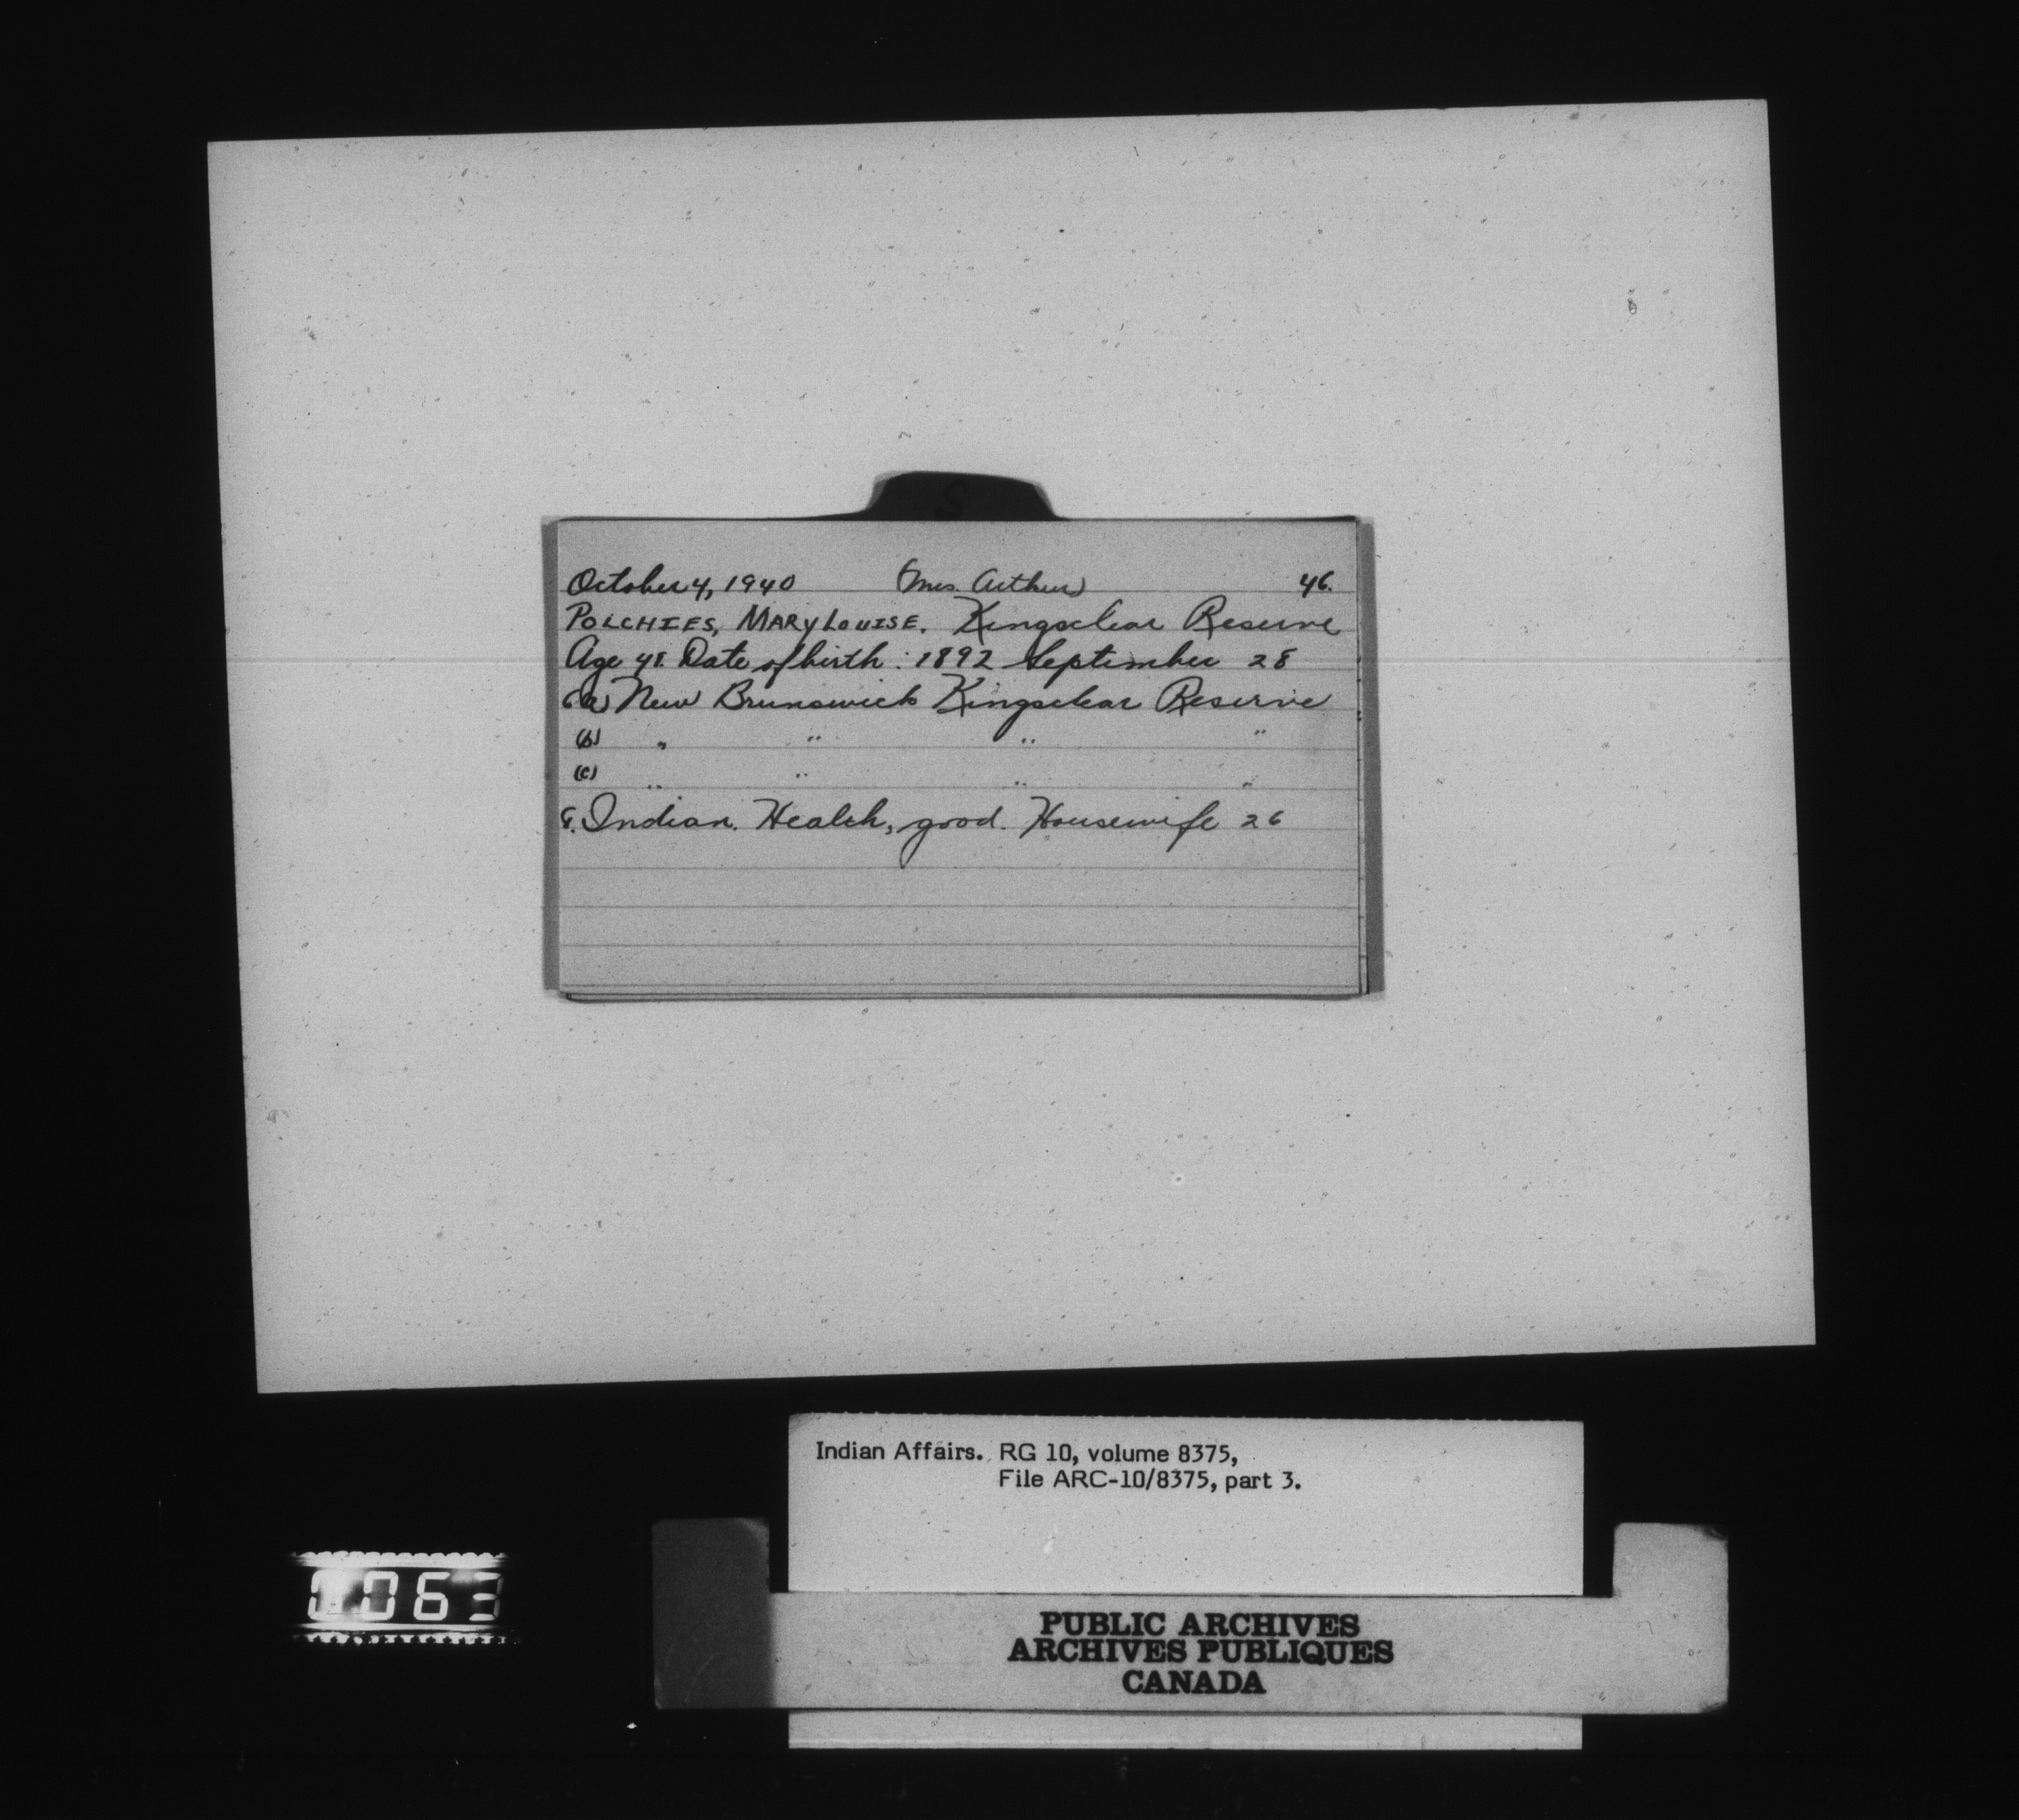 S
October 4, 1940 (Mrs. Arthur) 46.
POLCHIES, MARY LOUISE. Kingsclear Reserve
Age 48. Date of birth: 1892 September 28
6(a) New Brunswick Kingsclear Reserve
(b) " " " "
(c) " " " "
8. Indian. Health, good. Housewife 26
Indian Affairs. RG 10, volume 8375,
File ARC-10/8375, part 3.
063
PUBLIC ARCHIVES
ARCHIVES PUBLIQUES
CANADA